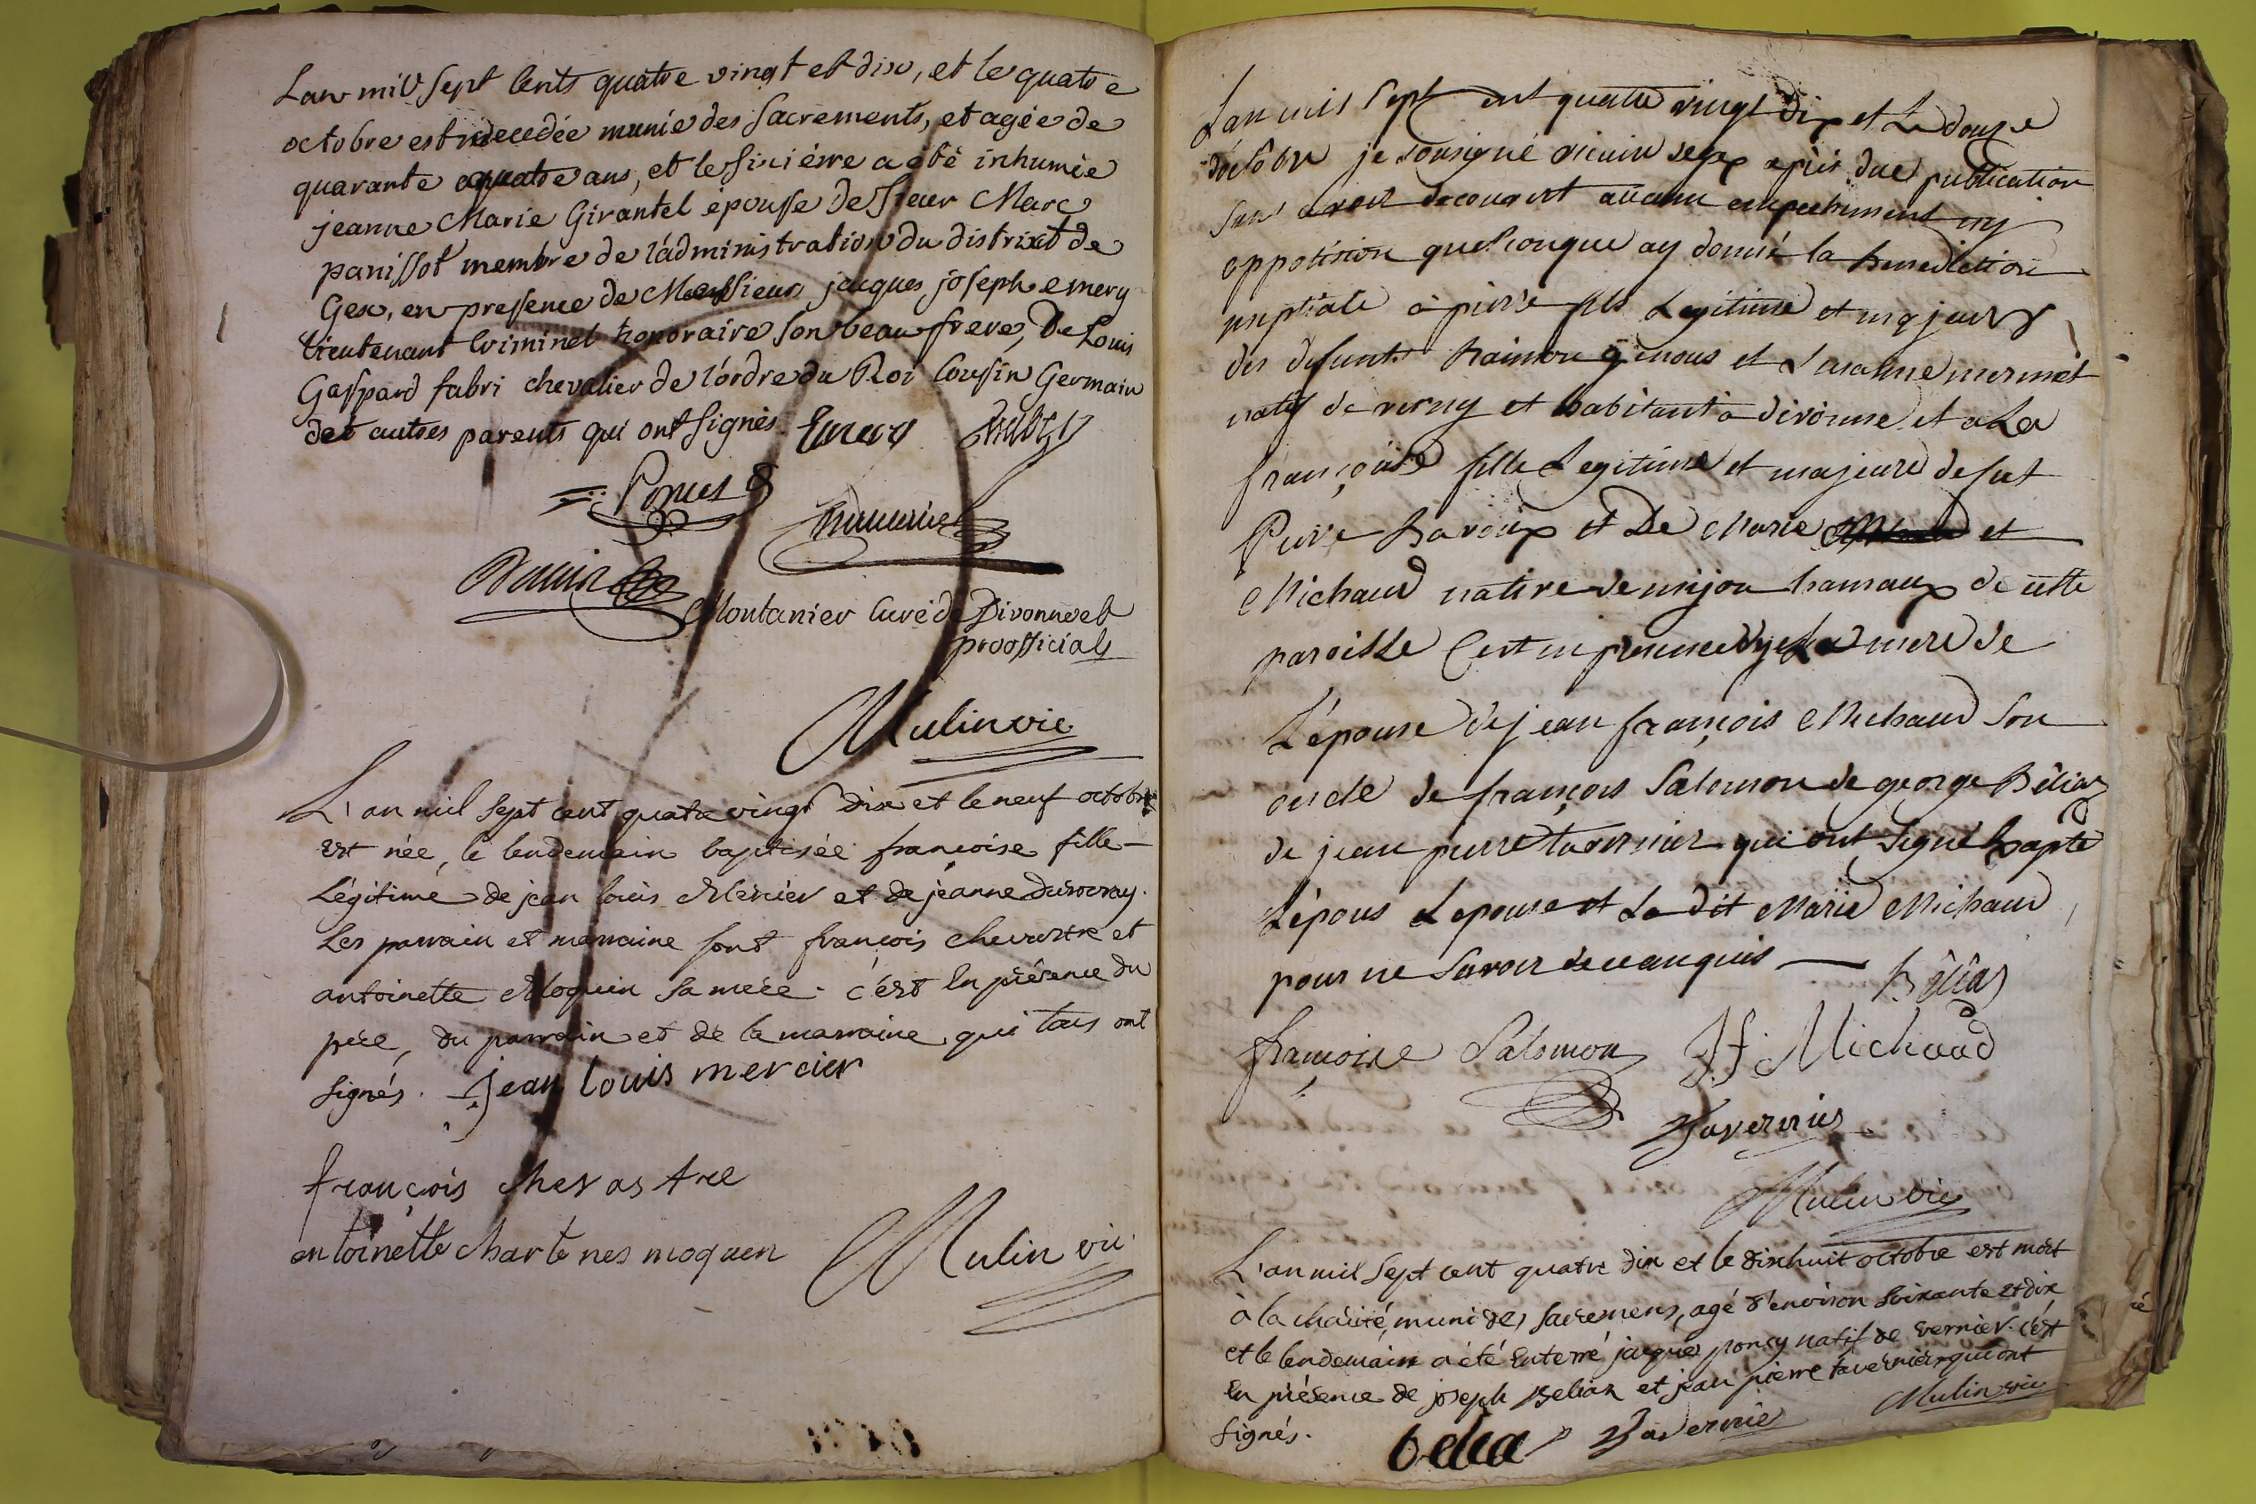 Lan mil Sept Cents quatre vingt et dix, et le quatre
octobre est decedée munie des Sacrements, et agée de
quarante quatre ans, et le sixiéme a été inhumée
jeanne Marie Girantel épousse de Sieur Marc
panissot membre de l'administration du distrixt de
Gex, en pressence de Messieurs jacques joseph emery
Lieutenant Criminel honoraire Son beau frere, De Louis
Gaspard fabri chevalier de l'ordre du Roi Coussin Germain
det autres parents qui ont Signés. Emery
Montanier Curé de Divonne et
proofficial
Mulin vic
L'an mil Sept cent quatre vingt dix et le neuf octobre
est née, le lendemain baptisée françoise fille
Légitime de jean louis Mercier et de jeanne
Les parrain et marraine sont françois chevastre et
antoinette Moquin sa mere. c'est En présence du
pere, du parrain et de la marraine qui tous ont
signés. jean louis mercier
françois chevastre
antoinette charte nes moquen
Mulin vic.
L'an mil sept cent quatre vingt dix et Le douze
d'octobre je sousigné vicaire de gex après due publication
sans avoir decouvert aucun empechement ny
oppotision quelconque ay donné la benediction
nuptiale a pierre fils Legitime et majeur
des defunts et mermet
natif de verny et habitant a divonne et a La
françoise fille Legitime et majeure de fut
Pierre et De Marie et
Michaud native de mijou hamaux de cette
paroisse C'est en presence de La mere de
L'épouse de jean françois Michaud son
oncle de françois Salomon de george Bélias
de jean pierre tavernier qui ont signé
L'épous L'epouse et La dit Marie Michaud
pour ne savoir de ce enquis — Bélias
françoise Salomon J f Michaud
Tavernier
Mulin vic
L'an mil Sept cent quatre dix et le dixhuit octobre est mort
à la charité, muni des Sacremens, agé d'environ Soixante et dix
et le lendemain a été Enterré jacques poncy natif de vernier. c'est
En présence de joseph Belias et jean pierre tavernier qui ont
signés. belia Tavernie Mulin vic